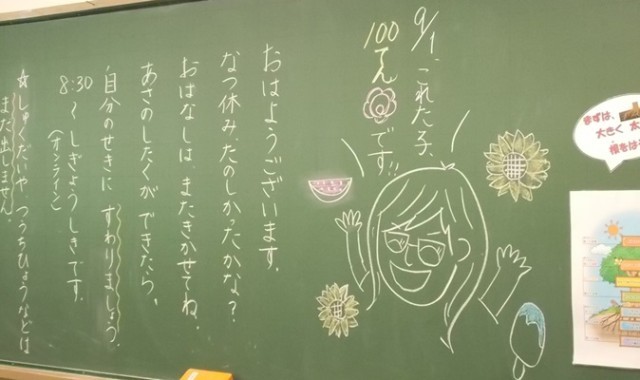 9/1、これた子、
100てん
です!!
おはようございます。
なつ休み、たのしかったかな?
おはなしは、またきかせてね。
あさのしたくが できたら、
自分のせきに すわりましょう。
8:30 〜 しぎょうしきです。
(オンライン)
☆しゅくだいや つうちひょうなどは
まだ出しません。
まずは、
大きく